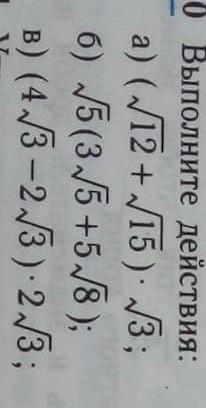 0 Выполните действия:
а) (√12 + √15) · √3;
б) √5(3√5 + 5√8);
в) (4√3 − 2√3) · 2√3;